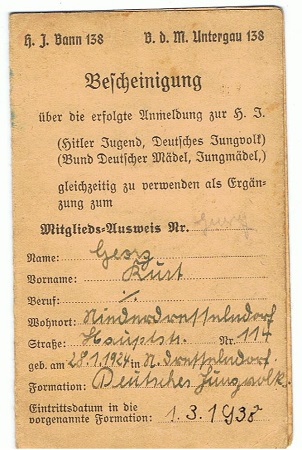 H. J. Bann 138 B. d. M. Untergau 138
Bescheinigung
über die erfolgte Anmeldung zur H. J.
(Hitler Jugend, Deutsches Jungvolk)
(Bund Deutscher Mädel, Jungmädel,)
gleichzeitig zu verwenden als Ergän-
zung zum
Mitglieds-Ausweis Nr.
Name: Georg
Vorname: Kurt
Beruf: ./.
Wohnort: Niederdresselndorf
Straße: Hauptstr. Nr. 114
geb. am 28.1.1924 in N. dresselndorf.
Formation: Deutsches Jungvolk.
Eintrittsdatum in die
vorgenannte Formation: 1.3.1938